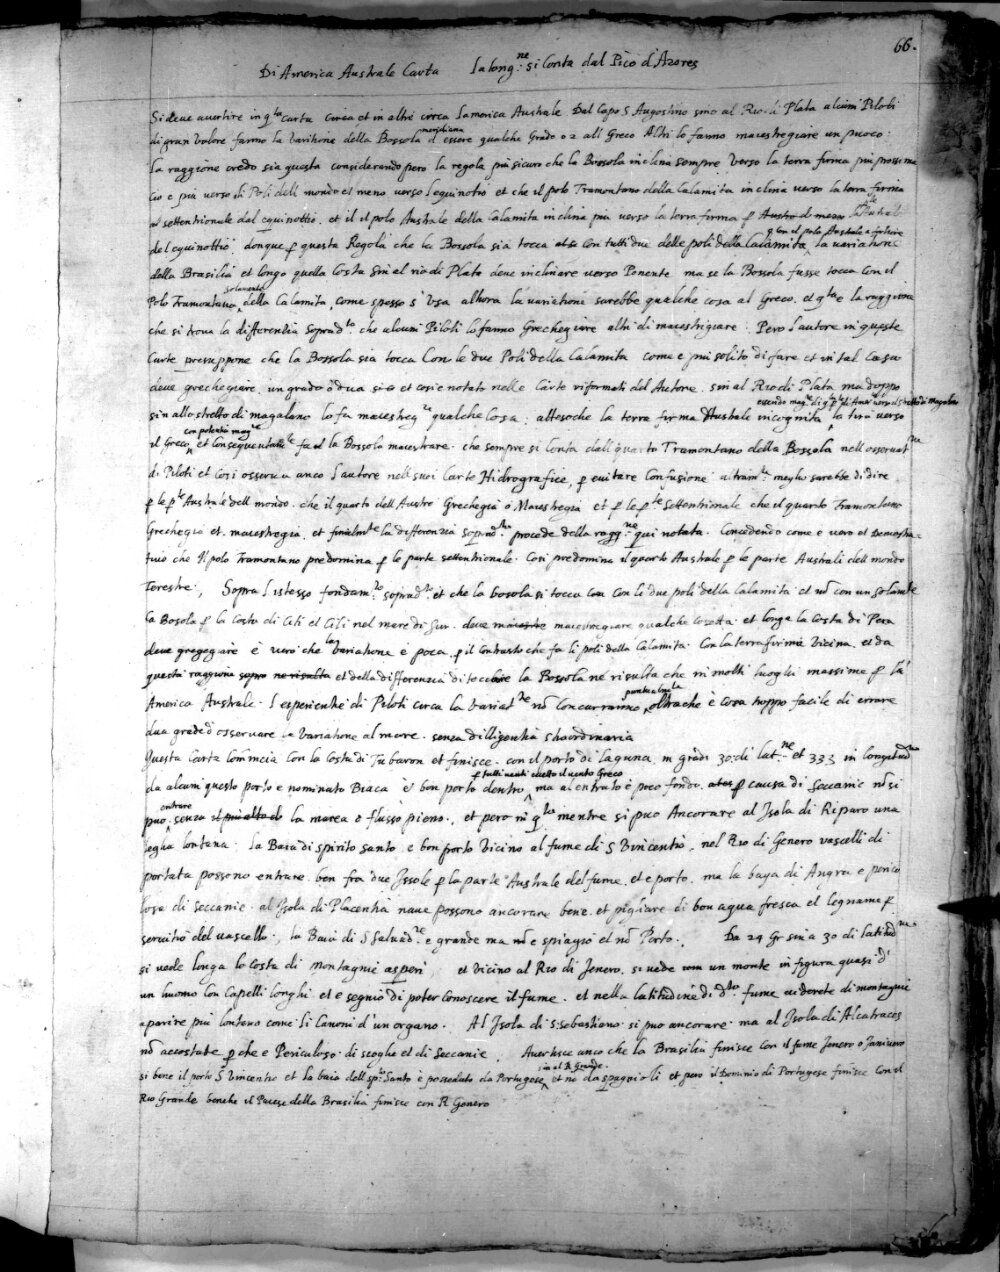 66.
Di America Australe Carta la long.ne si Conta dal Pico d'Azores
Si deve avertire in q.ta Carta Cinea et in altri circa lamerica Australe Dal Capo S Augostino sino al Rio di Plata alcuni Piloti
di gran valore fanno la varitione della Bossola meridiana d'essere qualche Grado o 2 all Greco Altri lo fanno maestregiare un puoco:
la raggione credo sia questa considerando pero la regola piu sicura che la Bossola inclina sempre verso la terra firma piu prossima
Cio e piu verso di Poli dell mondo et meno verso l'equinotio et che il polo Tramontano della Calamita in clina verso la terra firma
settentrionale dal equinottio. et il il polo Australe della Calamita inclina piu verso la terra firma p Australe
del equinottio. donque p questa Regola che la Bossola sia tocca con tutti due delle poli della Calamita, la variatione
della Brasilia et longo quella Costa sin al rio di Plata deve inclinare verso Ponente ma se la Bossola fusse tocca con il
Polo Tramontana solamente della Calamita, come spesso s' Usa alhora la variatione sarebbe qualche cosa al Greco. et q.ta e la raggione
che si trova la differentia soprad.ta che alcuni Piloti lo fanno Grechegiare altri di maestrigiare: Pero l'autore in queste
Carte presuppone che la Bossola sia tocca Con le due Poli della Calamita come e piu solito di fare et in tal Caso
deve grechegiare un grado ò dua et cosi e notato nelle Carte riformati del Autore. sin al Rio di Plata ma doppo
sin allo stretto di magalano lo fa maestreg.re qualche Cosa. attesoche la terra firma Australe incognita, la tira verso
il Greco, con potentia mag.re et Consequentam.te fa al la Bossola maestrare. che sempre si Conta dall quarto Tramontano della Bossola nell osservat.ne
di Piloti et Cosi osserva anco l'autore nell suoi Carte Hidrografice, p evitare Confusione altram.te meglio sarebbe di dire
p le p.te Australe dell mondo. che il quarto dell Austro Grechegia o Maestregia et p le p.te Settentrionale che il quarto Tramontano
Grechegia et maestregia. et finalm.te la differenzia soprad.ta procede della ragg.ne qui notata. Concedendo come e vero et Demostra-
tivo che Il polo Tramontano predomina p le parte settentrionale. Cosi predomina il quarto Australe p le parte Australi dell mondo
Terestre, Sopra l'istesso fondam.to soprad.to et che la bosola si tocca Con li due poli della Calamita et no con un solam.te
la Bosola p la Costa di Citi et Cili nel mare di Sur. deve maestregiare qualche Cosetta. et longo la Costa di Peru
deve gregegiare è vero che la Variatione è poca. p il Contrasto che fa li poli della Calamita. Con la terra firma Vicina. et da
questa raggiona et della differenzia di toccare la Bossola ne risulta che in molti luoghi massime p la
America Australe. l'esperientie di Piloti circa la variat.ne no Concurranno puntualm.te, oltra che è Cosa troppo facile di errare
dua grade d'osservare la Variatione al more. senza dilligentia straordinaria
Questa Carta Comincia Con la Costa di Tubaron et finisce. con il porto di laguna in gradi 30: di lat.ne et 333 in longitud.ne
da alcuni questo porto e nominato Biaca è bon porto dentro, p tutti venti ma al entrato è poco fondo. p causa di seccanie no si
puo entrare senza la marea o flusso pieno., et pero in q.to mentre si puo Ancorare al Isola di Riparo una
legha lontana. la Baia di spirito santo e bon porto Vicino al fume di S Vincentio. nel Rio di Genero vascelli di
portata possono entrare ben fra due Issole p la parte Australe del fume. et e porto. ma la baya di Angra e perico
losa di Seccanie. al Isola di Placentia nave possono ancorare bene et pigliare di bon aqua fresca et legname p
servitio del vascello., la Baia di S Salvad.re e grande ma no e spiagio et no Porto. Da 24 Gr sin a 30 di latitud.ne
si vede longa lo Costa di montagnie asperi, et Vicino al Rio di Jenero. si vede un monte in figura quasi d'
un huomo Con Capelli longhi et e segnio di poter Conoscere il fume. et nella latitudine di d.to fume vederete di montagnie
aparire piu lontano come li Canoni d'un organo. Al Isola di S:Sebastiano si puo ancorare ma al Isola di Alcatraces
no accostate p che e Periculoso di scoglie et di Seccanie, Avertisce anco che la Brasilia finisce Con il fume Jenero o Janiuero
si bene il porto S Vincentio et la baia dell sp.to Santo è posseduto da Portugese, sin al R Grande. et no da spagnioli et pero il Dominio di Portugese finisce Con il
Rio Grande benche il Paese della Brasilia finisce con R Genero